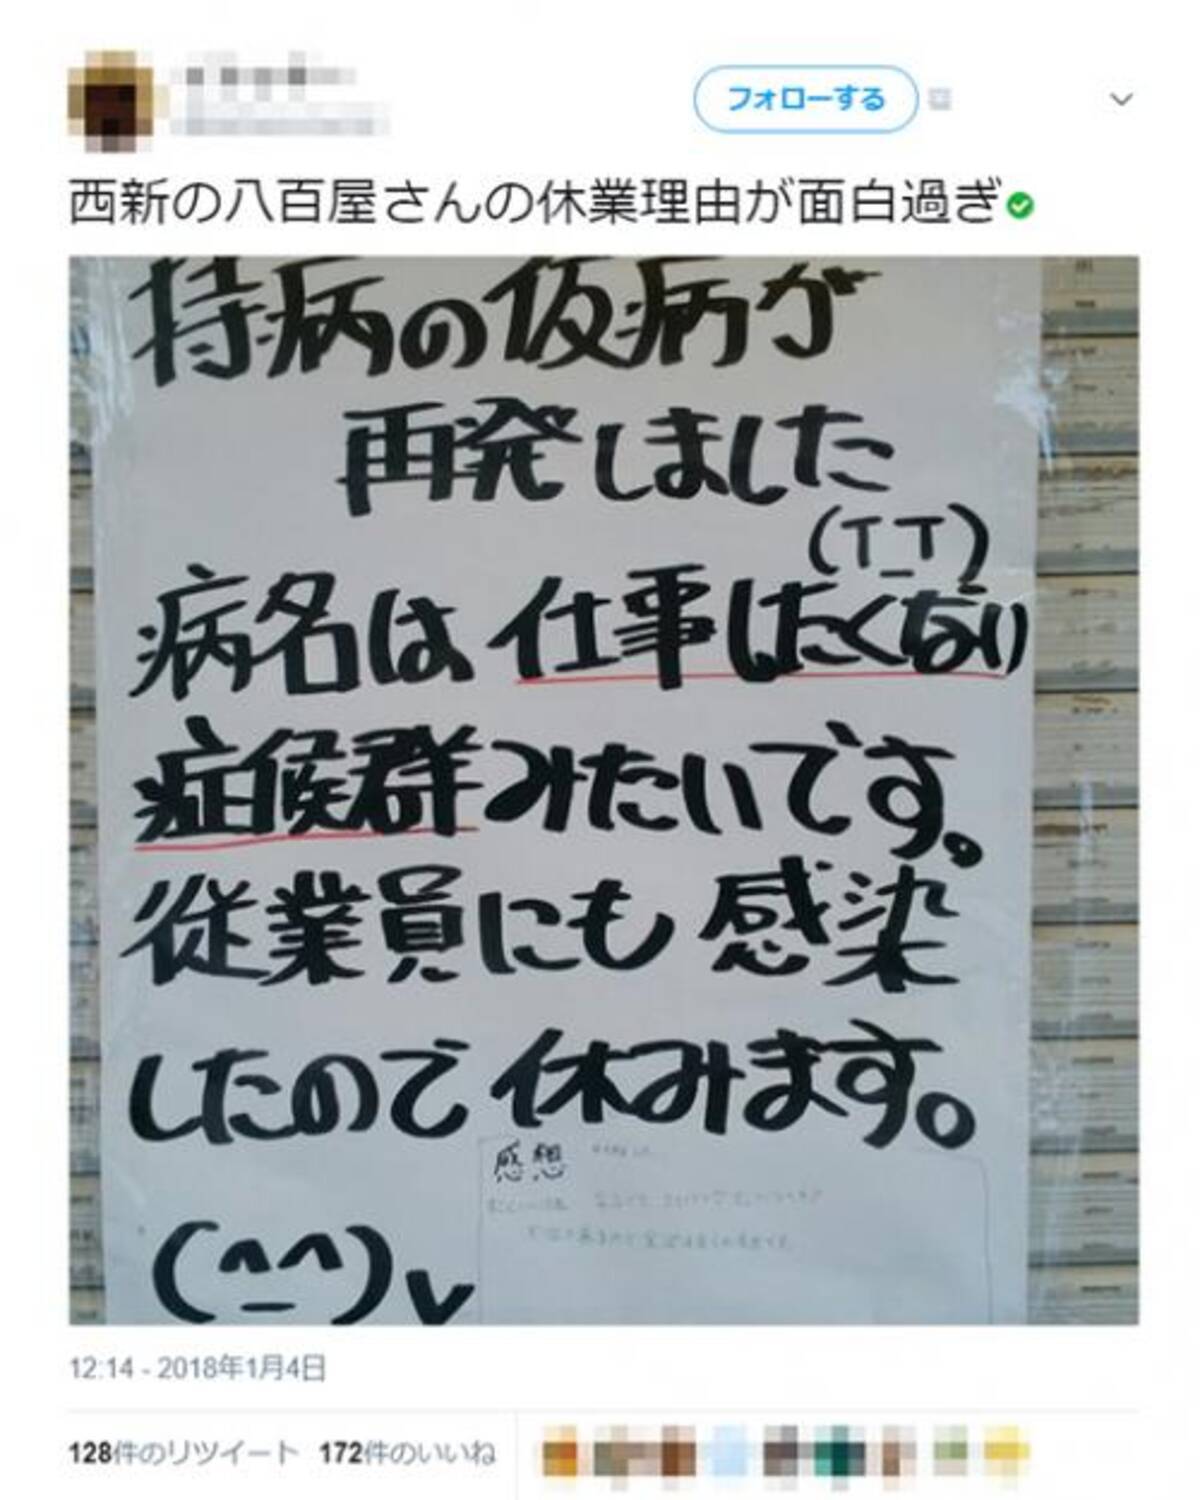 フォローする
西新の八百屋さんの休業理由が面白過ぎ
持病の仮病が
再発しました
(T_T)
病名は 仕事したくない
症候群みたいです。
従業員にも 感染
したので 休みます。
感想
(^_^)v
12:14 - 2018年1月4日
128件のリツイート 172件のいいね